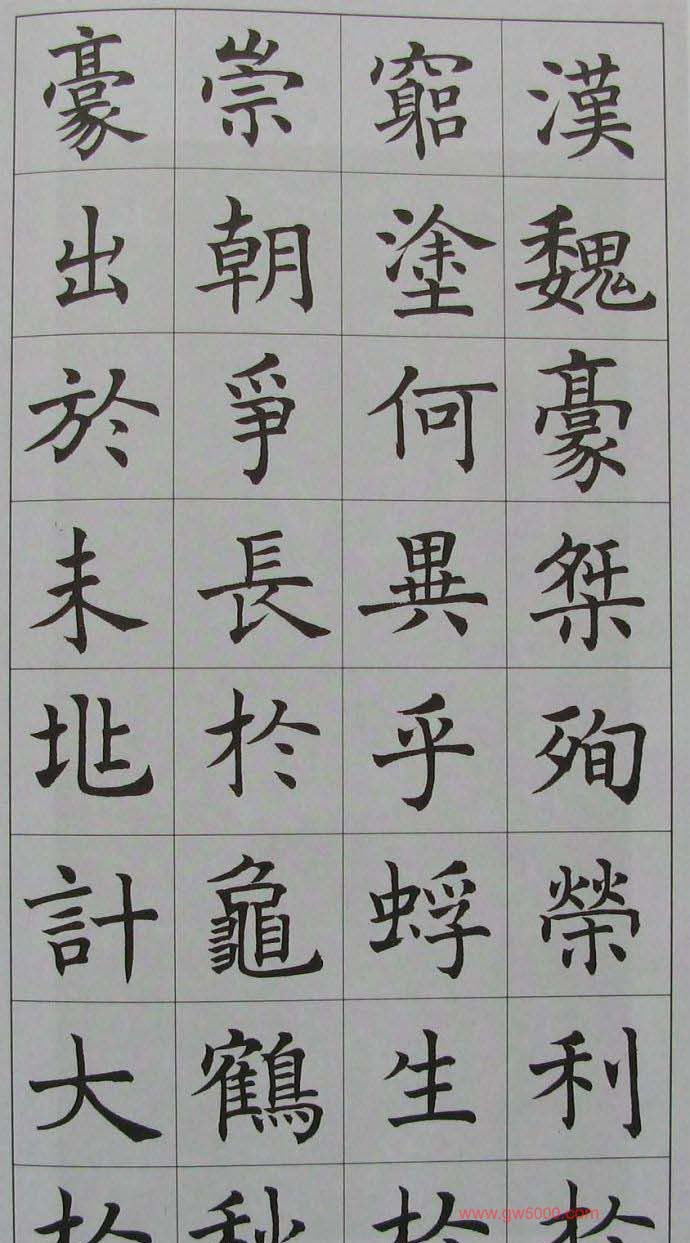 漢魏豪桀殉榮利扵
竆塗何異乎蜉生扵
崇朝爭長扵龜鶴秋
豪出於未計大扵
www.gw6000.com